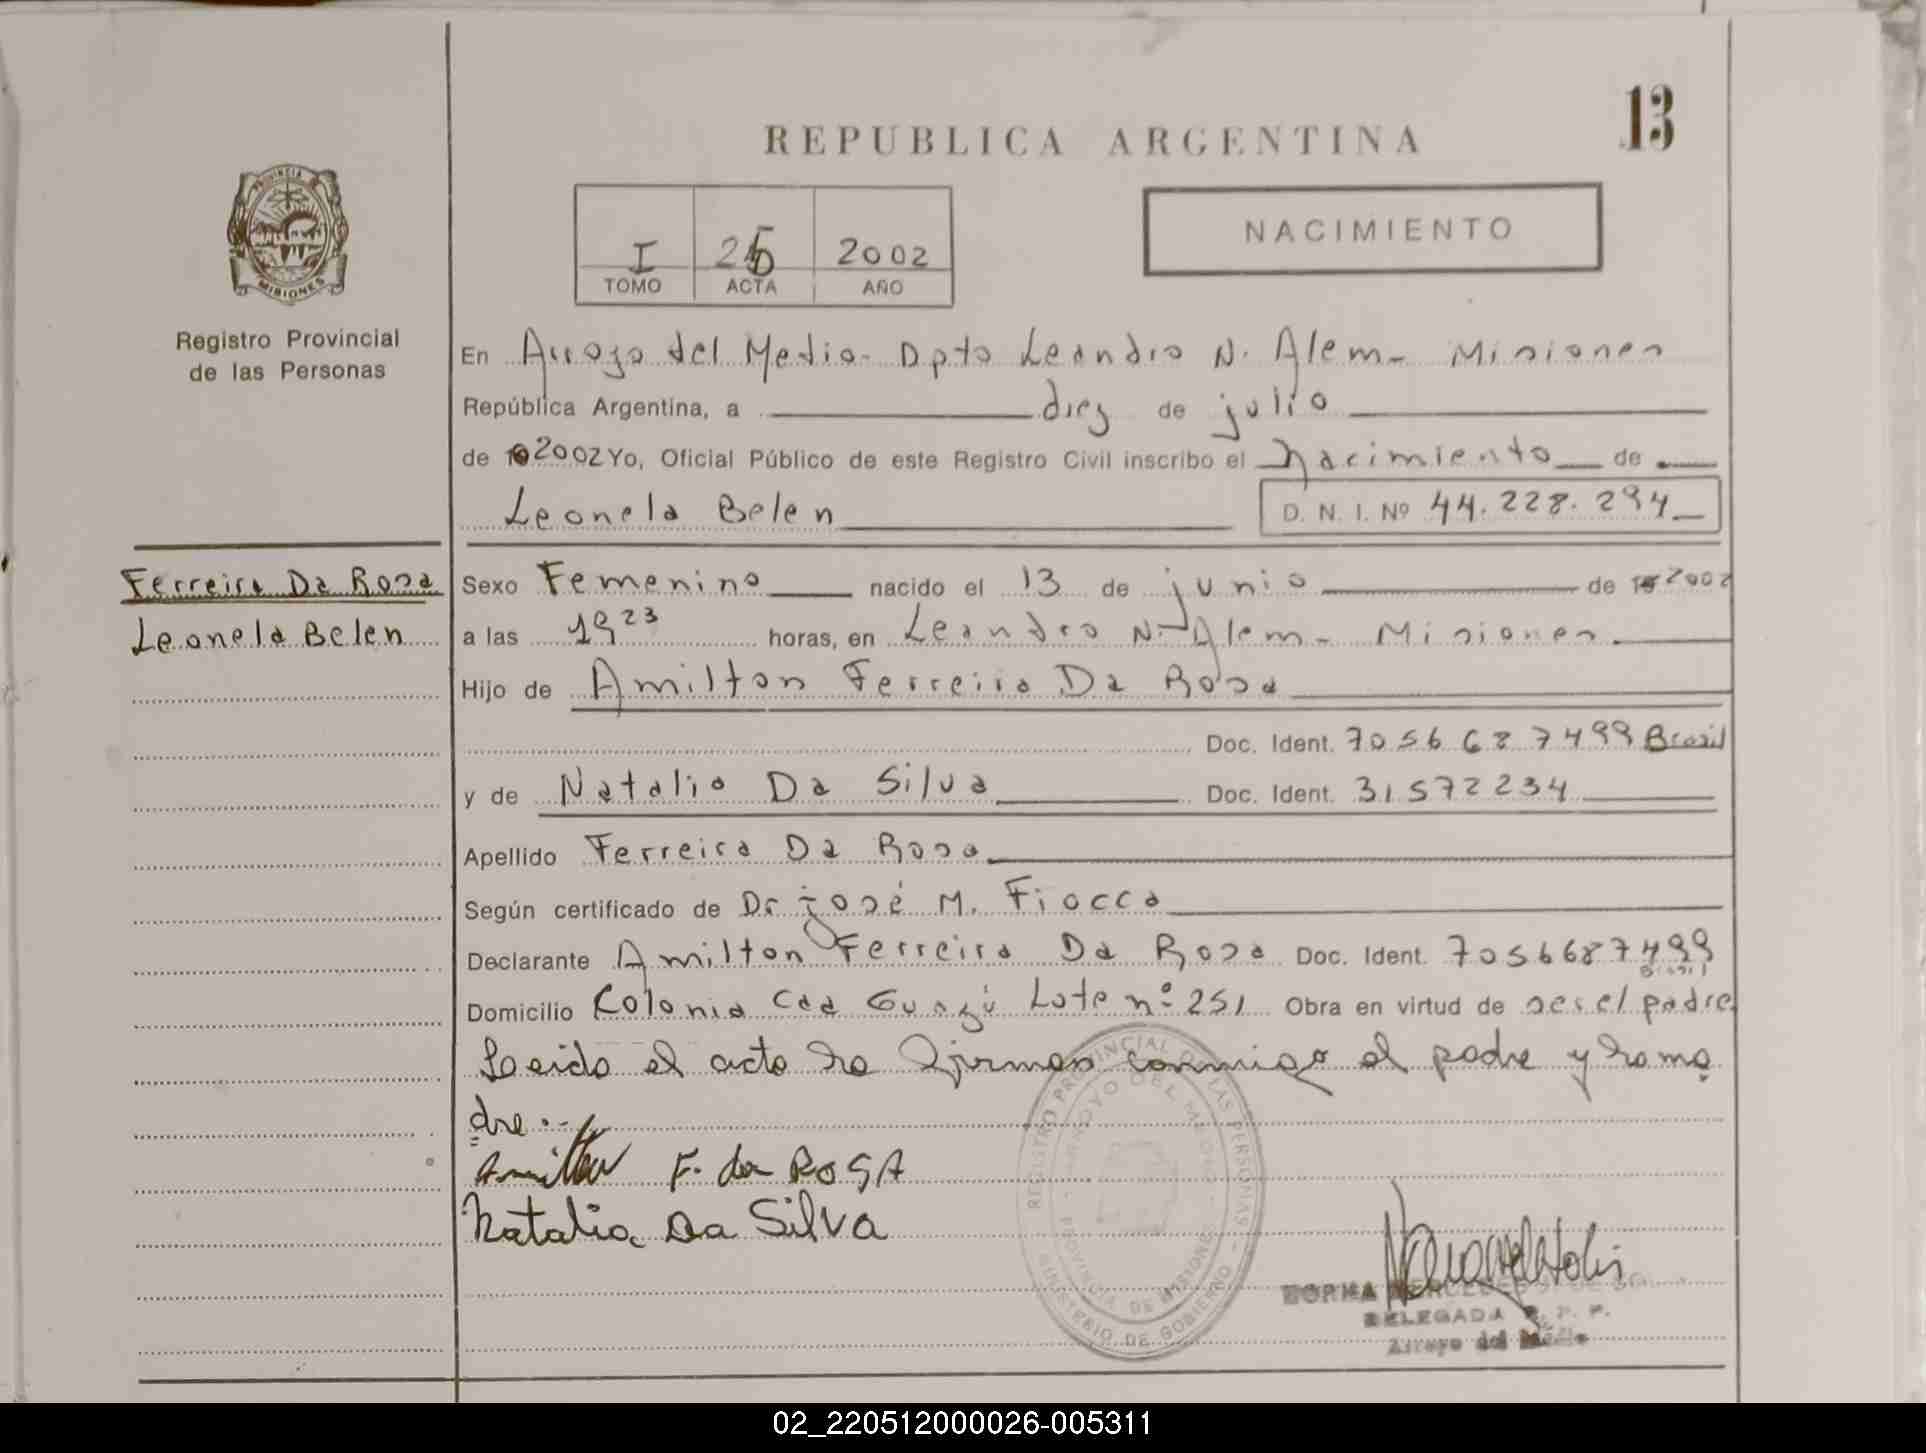 13
REPUBLICA ARGENTINA
PROVINCIA DE
MISIONES
NACIMIENTO
I 2002
TOMO ACTA AÑO
Registro Provincial
de las Personas
En Arroyo del Medio- Dpto Leandro N. Alem- Misiones
República Argentina, a diez de julio
de 2002 Yo, Oficial Público de este Registro Civil inscribo el nacimiento de
Leonela Belen D. N. I. Nº 44.228.294
Ferreira Da Rosa
Leonela Belen
Sexo Femenino nacido el 13 de junio de 2002
a las 19 23 horas, en Leandro N. Alem- Misiones
Hijo de Amilton Ferreira Da Rosa
Doc. Ident. 7056687499 Brasil
y de Natalia Da Silva Doc. Ident. 31572234
Apellido Ferreira Da Rosa
Según certificado de Dr josé M. Fiocca
Declarante Amilton Ferreira Da Rosa Doc. Ident. 7056687499
Brasil
Domicilio Colonia Caa Guazú Lote nº 251 Obra en virtud de ser el padre
Leido el acta la firman conmigo el padre y la ma
dre.-
Amilton F. da ROSA
Natalia Da Silva
REGISTRO PROVINCIAL DE LAS PERSONAS
MINISTERIO DE GOBIERNO
ARROYO DEL MEDIO
PROVINCIA DE MISIONES
NORMA MERCEDES
DELEGADA R. P. P.
Arroyo del Medio
02_220512000026-005311